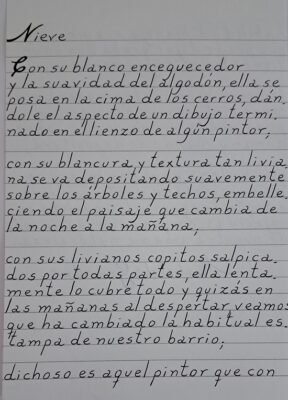 Nieve
Con su blanco enceguecedor
y la suavidad del algodón, ella se
posa en la cima de los cerros, dán.
dole el aspecto de un dibujo termi.
nado en el lienzo de algún pintor;
con su blancura y textura tan livia,
na se va depositando suavemente
sobre los árboles y techos, embelle.
ciendo el paisaje que cambia de
la noche a la mañana;
con sus livianos copitos salpica.
dos por todas partes, ella lenta.
mente lo cubre todo y quizás en
las mañanas al despertar veamos
que ha cambiado la habitual es.
tampa de nuestro barrio;
dichoso es aquel pintor que con